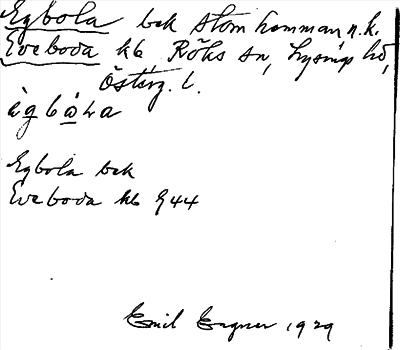 Egbola bek Stom hemman n. k.
Eveboda kb Röks sn, Lysings hd,
Österg. l.
ègbòla
Egbola bek
Eveboda kb 944
Emil Ergner 1929